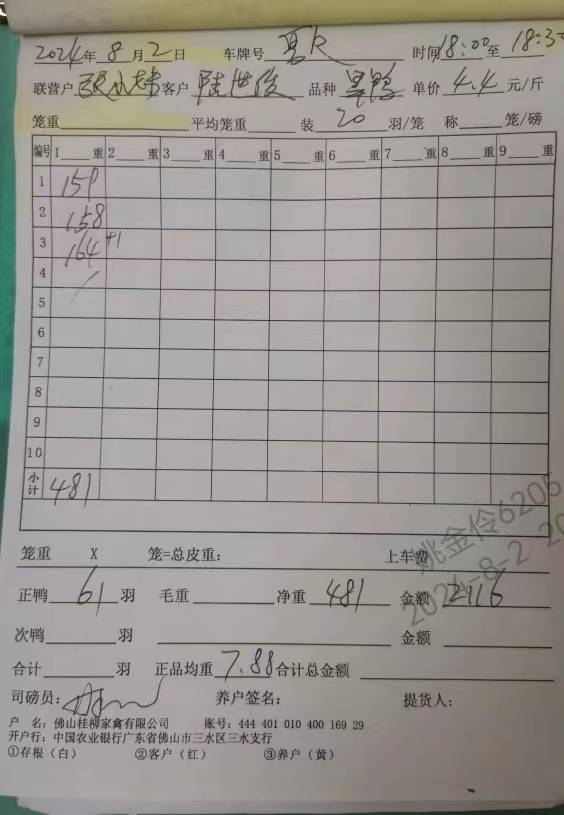 2024年8月2日 车牌号 时间18:00至18:30
联营户 客户 陆世俊 品种 黑鸭 单价 4.4 元/斤
笼重 平均笼重 装 20 羽/笼 称 笼/磅
编号 1 重 2 重 3 重 4 重 5 重 6 重 7 重 8 重 9 重
1 159
2 158
3 164 +1
4
5
6
7
8
9
10
小计 481
姚金伶6205
2024-8-2 20
笼重 X 笼=总皮重: 上车费
正鸭 61 羽 毛重 净重 481 金额 2116
次鸭 羽 金额
合计 羽 正品均重 7.88 合计总金额
司磅员: 养户签名: 提货人:
户 名: 佛山桂柳家禽有限公司 账号: 444 401 010 400 169 29
开户行: 中国农业银行广东省佛山市三水区三水支行
①存根(白) ②客户(红) ③养户(黄)